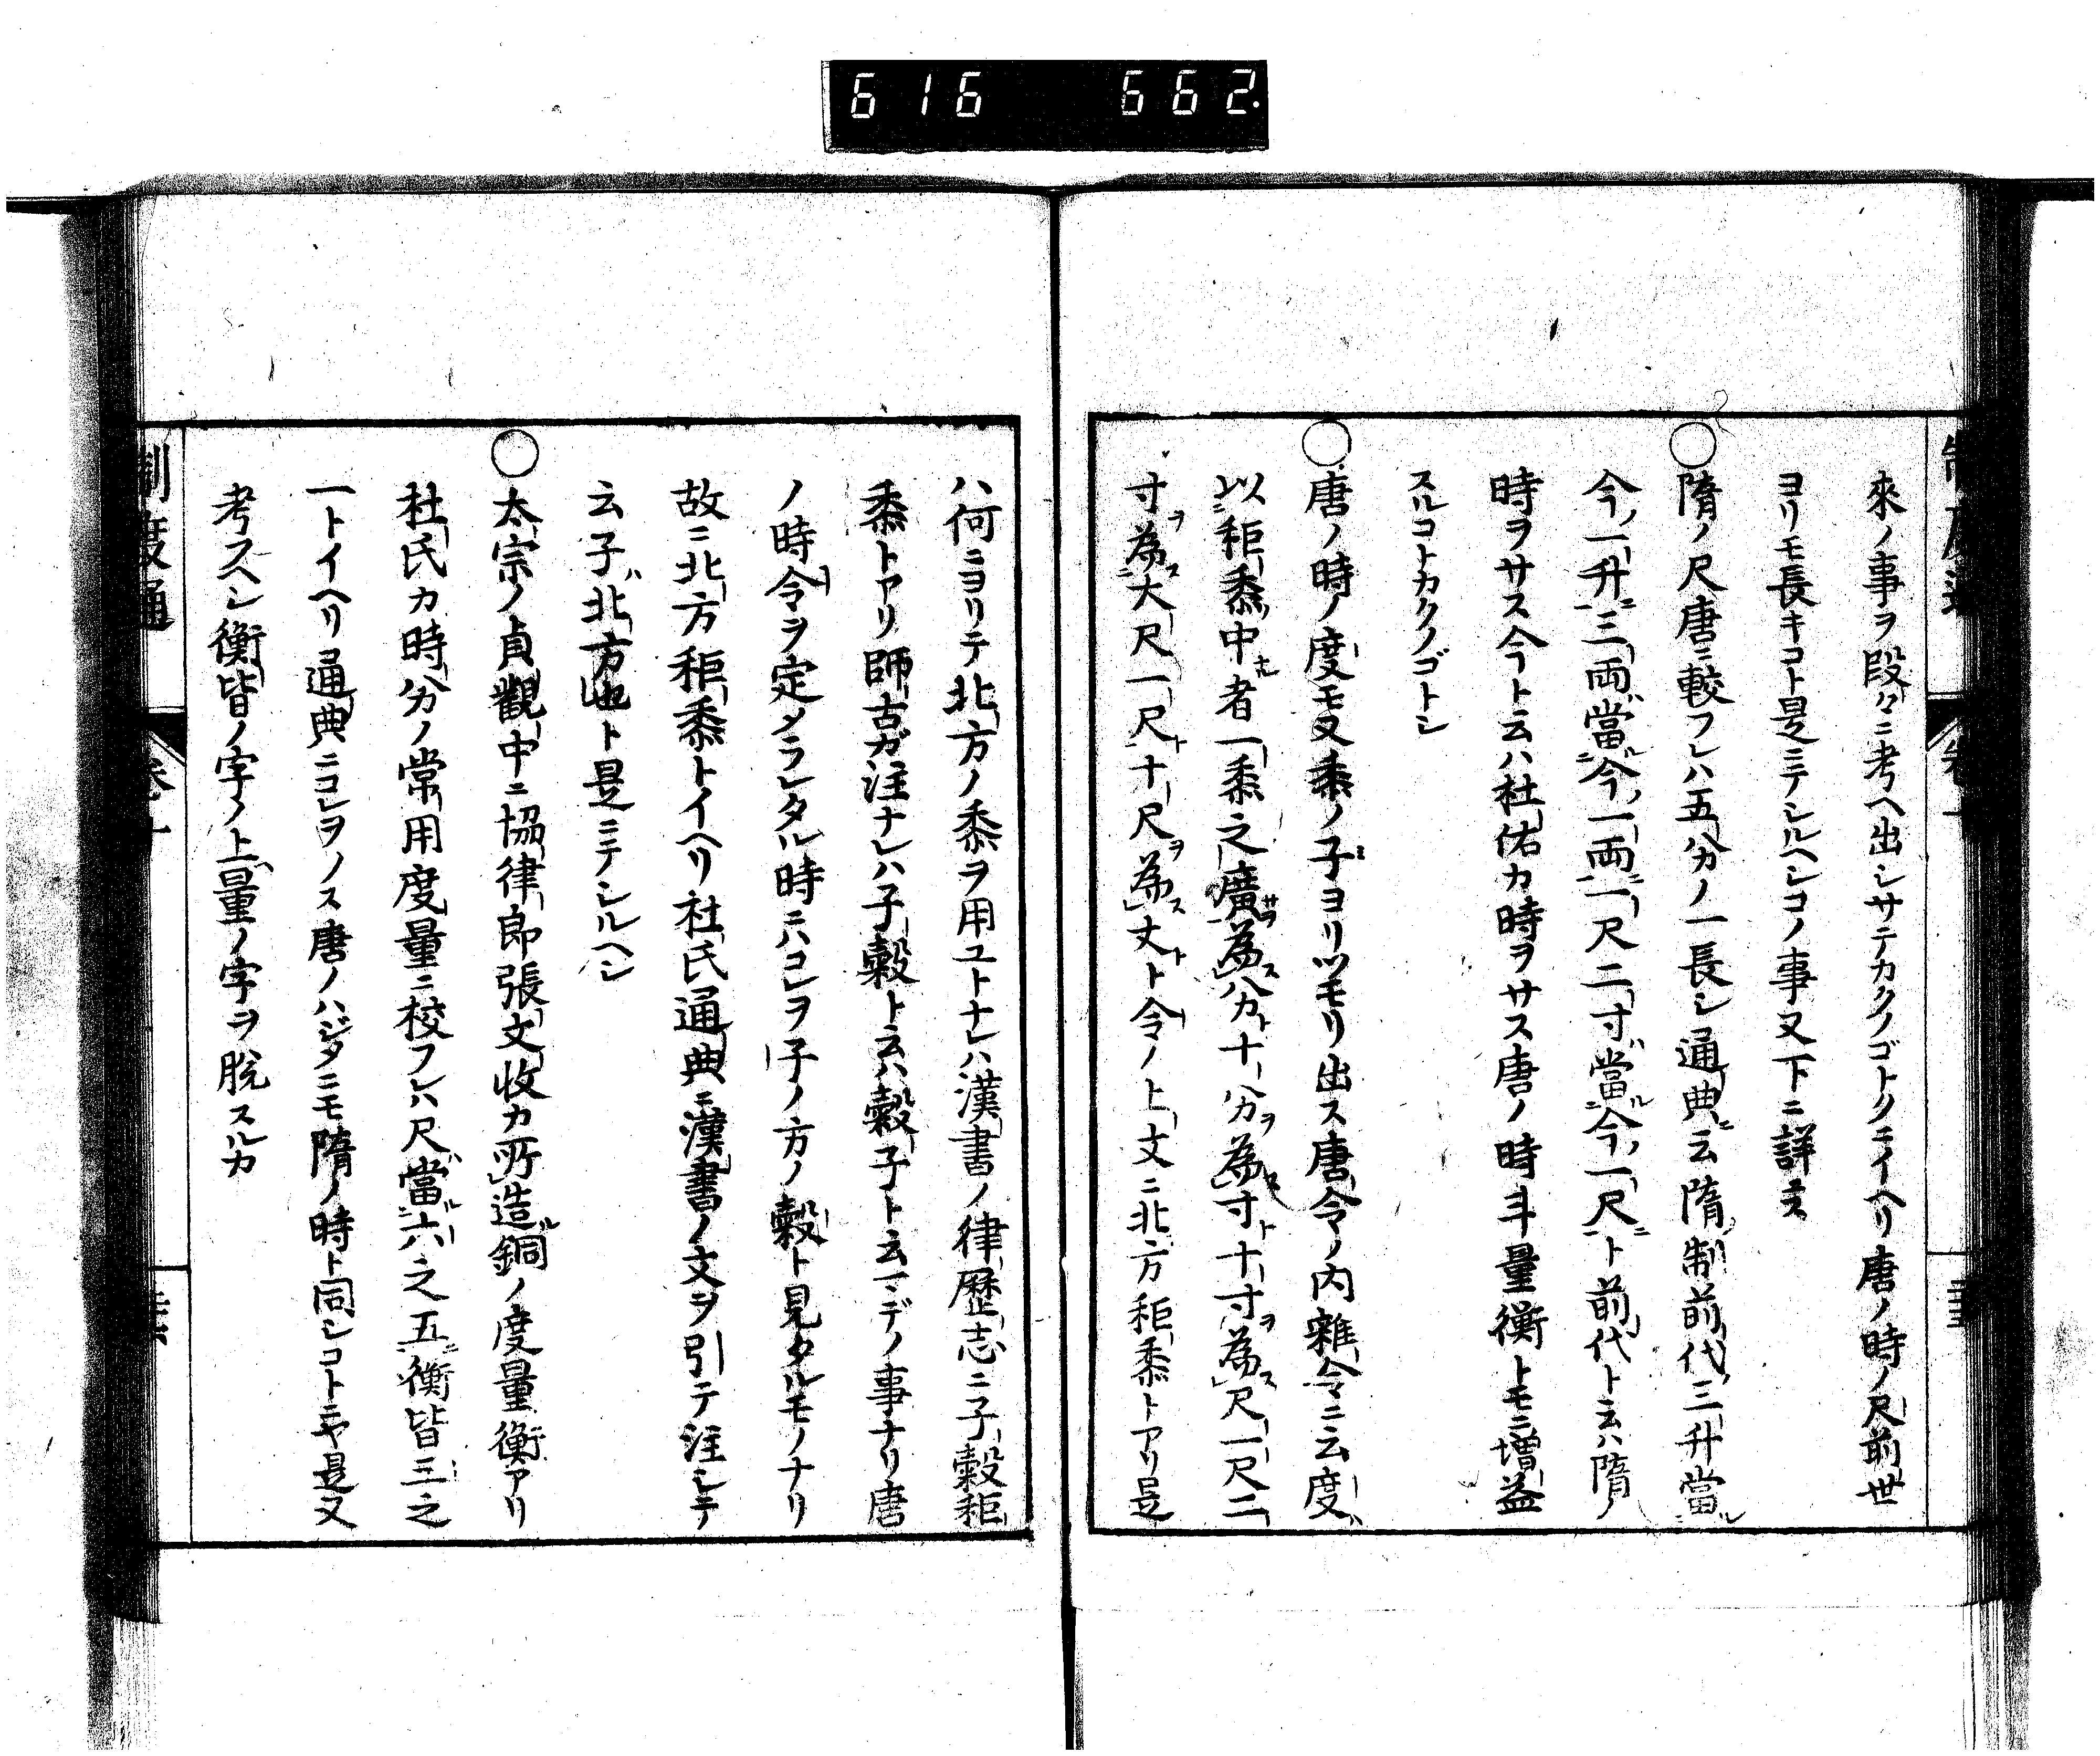 616 662.
來ノ事ヲ段〻ニ考ヘ出シサテカクノゴトクニイヘリ唐ノ時ノ尺前世
ヨリモ長キコト是ニテシルヘシコノ事又下ニ詳ニス
○隋ノ尺唐ニ較フレハ五分ノ一長シ通典ニ云隋制前代三升當ル
今ノ一升ニ三両ハ當ル今ノ一両ニ一尺二寸ハ當ル今ノ一尺ニト前代ト云ハ隋ノ
時ヲサス今ト云ハ杜佑カ時ヲサス唐ノ時斗量衡トモニ増益
スルコトカクノゴトシ
○唐ノ時ノ度モ又黍ノ子ミヨリツモリ出ス唐令ノ内雜令ニ云度ハ
以秬黍中ナル者一黍之廣サヲ為ス分ト十分ヲ為ス寸ト十寸ヲ為ス尺ト一尺二
寸ヲ為ス大尺一尺ト十尺ヲ為ス丈ト令ノ上文ニ北方秬黍トアリ是
ハ何ニヨリテ北方ノ黍ヲ用ユトナレハ漢書ノ律歴志ニ子穀秬
黍トアリ師古ガ注ナレハ子穀ト云ハ穀子ト云マデノ事ナリ唐
ノ時令ヲ定メラレタル時ニハコレヲ子ノ方ノ穀ト見タルモノナリ
故ニ北方秬黍トイヘリ杜氏通典ニ漢書ノ文ヲ引テ注シテ
云子ハ北方也ト是ニテシルヘシ
○太宗ノ貞觀中ニ協律郎張文收カ所造ル銅ノ度量衡アリ
杜氏カ時分ノ常用度量ニ校フレハ尺ハ當ル六之五ニ衡皆三之
一トイヘリ通典ニコレヲノス唐ノハジメニモ隋ノ時ト同シコトニヤ是又
考スヘシ衡皆ノ字ノ上ヘ量ノ字ヲ脱スルカ
制度通